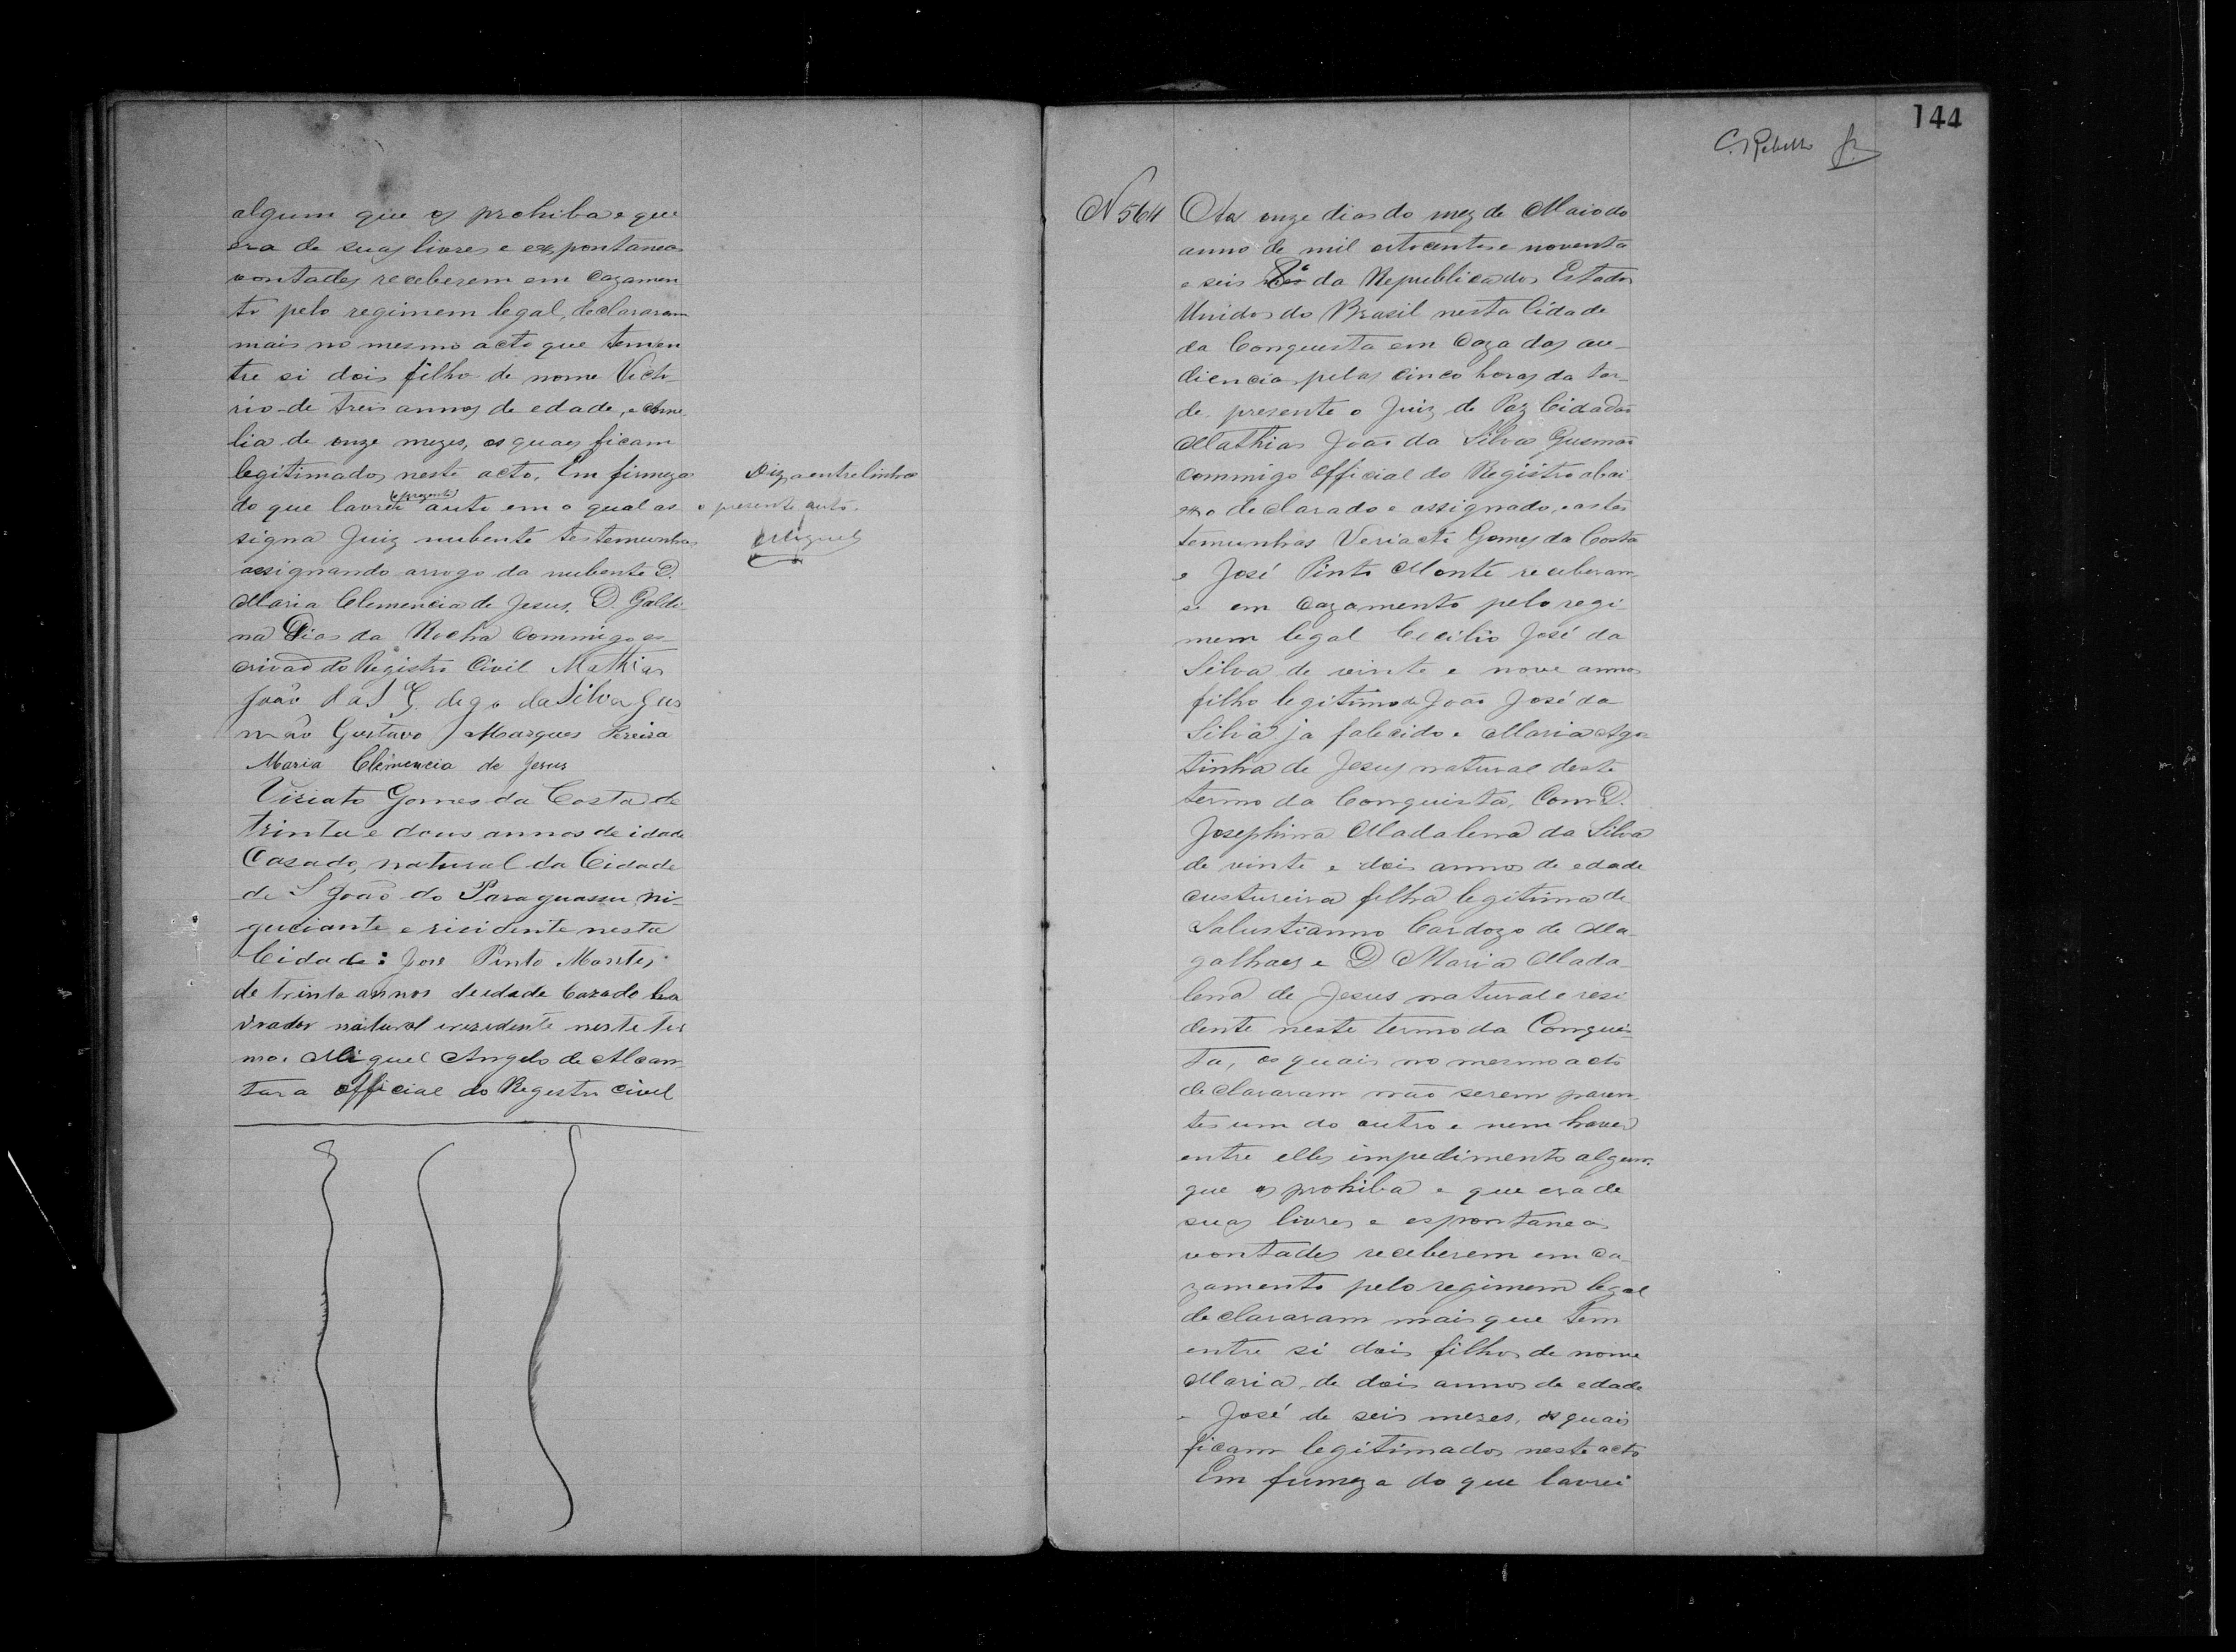 algum que os prohiba e que
era de suas livres e expontaneas
vontades receberem em cazamen
to pelo regimem legal, declararam
mais no mesmo acto que tem en
tre si dois filho de nome Victo
rio de treis annos de edade, e Ame
lia de onze mezes, os quaes ficam
legitimados neste acto. Em firmeza
do que lavrei (o prezente) auto em o qual as
signa Juiz nubente testemunhas
assignando arrogo da nubente D.
Maria Clemencia de Jesus, D. Galdi
na Dias da Rocha commigo es
crivão do Registro Civil Mathias
João da S G. digo da Silva Gus
mão Gustavo Marques Pereira
Maria Clemencia de Jesus
Viriato Gomes da Costa de
trinta e dous annos de idade
Casado, natural da Cidade
de S João do Paraguassu ni-
guciante e risidente nesta
Cidade: José Pinto Montes
de trinta annos de idade Cazado la
vrador natural e rezidente neste ter
mo. Miguel Angelo de Alcan
tara official do Registro civil
Diz a entrelinha
o presente auto.
Miguel
144
C. Rebello Jr.
N 564
Aos onze dias do mez de Maio do
anno de mil oitocentos e noventa
e seis 8º da Republica dos Estados
Unidos do Brasil nesta Cidade
da Conquista em Caza das au-
diencias pelas cinco horas da tar-
de, presente o Juiz de Paz Cidadão
Mathias João da Silva Gusmão
commigo official do Registro abai
xo declarado e assignado, e as tes
temunhas Veriacto Gomes da Costa
e José Pinto Monte receberam
se em cazamento pelo regi
mem legal Cecilio José da
Silva de vinte e nove annos
filho legitimo de João José da
Silva ja falecido e Maria Agos
tinha de Jesus natural deste
termo da Conquista, Com D.
Josephina Madalena da Silva
de vinte e dois annos de edade
custureira filha legitima de
Salustianno Cardozo de Ma-
galhaes e D Maria Mada-
lena de Jesus natural e resi
dente neste termo da Conquis-
ta, os quais no mesmo acto
declararam não serem paren
tes um do outro e nem haver
entre elles impedimento algum
que os prohiba e que era de
suas livres e espontaneas
vontades receberem em ca-
zamento pelo regimem legal
declararam mais que tem
entre si dois filhos de nome
Maria, de dois annos de edade
e José de seis mezes, os quais
ficam legitimados neste acto
Em firmeza do que lavrei